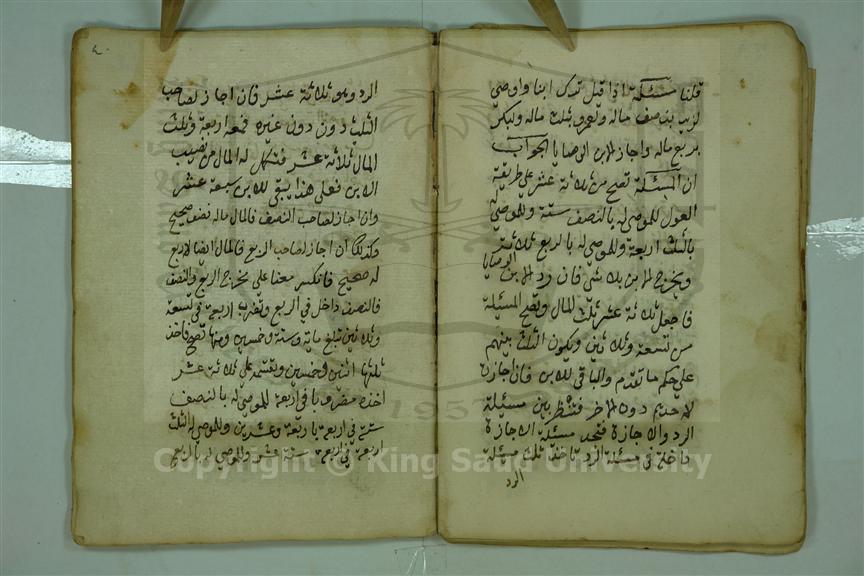 قلنا مسئلة اذا قيل ترك ابنا واوصى
لزيد بنصف ماله ولعمرو بثلث ماله ولبكر
بربع ماله واجاز الابن الوصايا الجواب
ان المسئلة تصح من ثلاثة عشر على طريقة
العول للموصى له بالنصف ستة وللموصى له
بالثلث اربعة وللموصى له بالربع ثلاثة
ويخرج الابن بلا شي فان رد الابن الوصايا
فاجعل ثلاثة عشر ثلث المال وتصح المسئلة
من تسعة وثلاثين ويكون الثلث بينهم
على حكم ما تقدم والباقي للابن فان اجاز
لاحدهم دون الاخر فتنظر بين مسئلة
الرد والاجازة فتجد مسئلة الاجازة
داخلة في مسئلة الرد تاخذ ثلث مسئلة
الرد
الرد وهو ثلاثة عشر فان اجاز لصاحب
الثلث دون غيره فمعه اربعة وثلث
المال ثلاثة عشر فتكمل له المال من نصيب
الابن فعلى هذا يبقى للابن سبعة عشر
وان اجاز لصاحب النصف فالمال ماله نصف صحيح
وكذلك ان اجاز لصاحب الربع فالمال ايضا لاربع
له صحيح فانكسر معنا على مخرج الربع والنصف
فالنصف داخل في الربع وتضرب اربعة في تسعة
وثلاثين تبلغ ماية وستة وخمسين ومنها تصح فاخذ
ثلثها اثنين وخمسين وتقسمه على ثلاثة عشر
اخذه مضروبا في اربعة للموصى له بالنصف
ستة في اربعة باربعة وعشرين وللموصى له الثلث
اربعة في اربعة ستة عشر وللموصى له بالربع
Copyright © King Saud University
1957